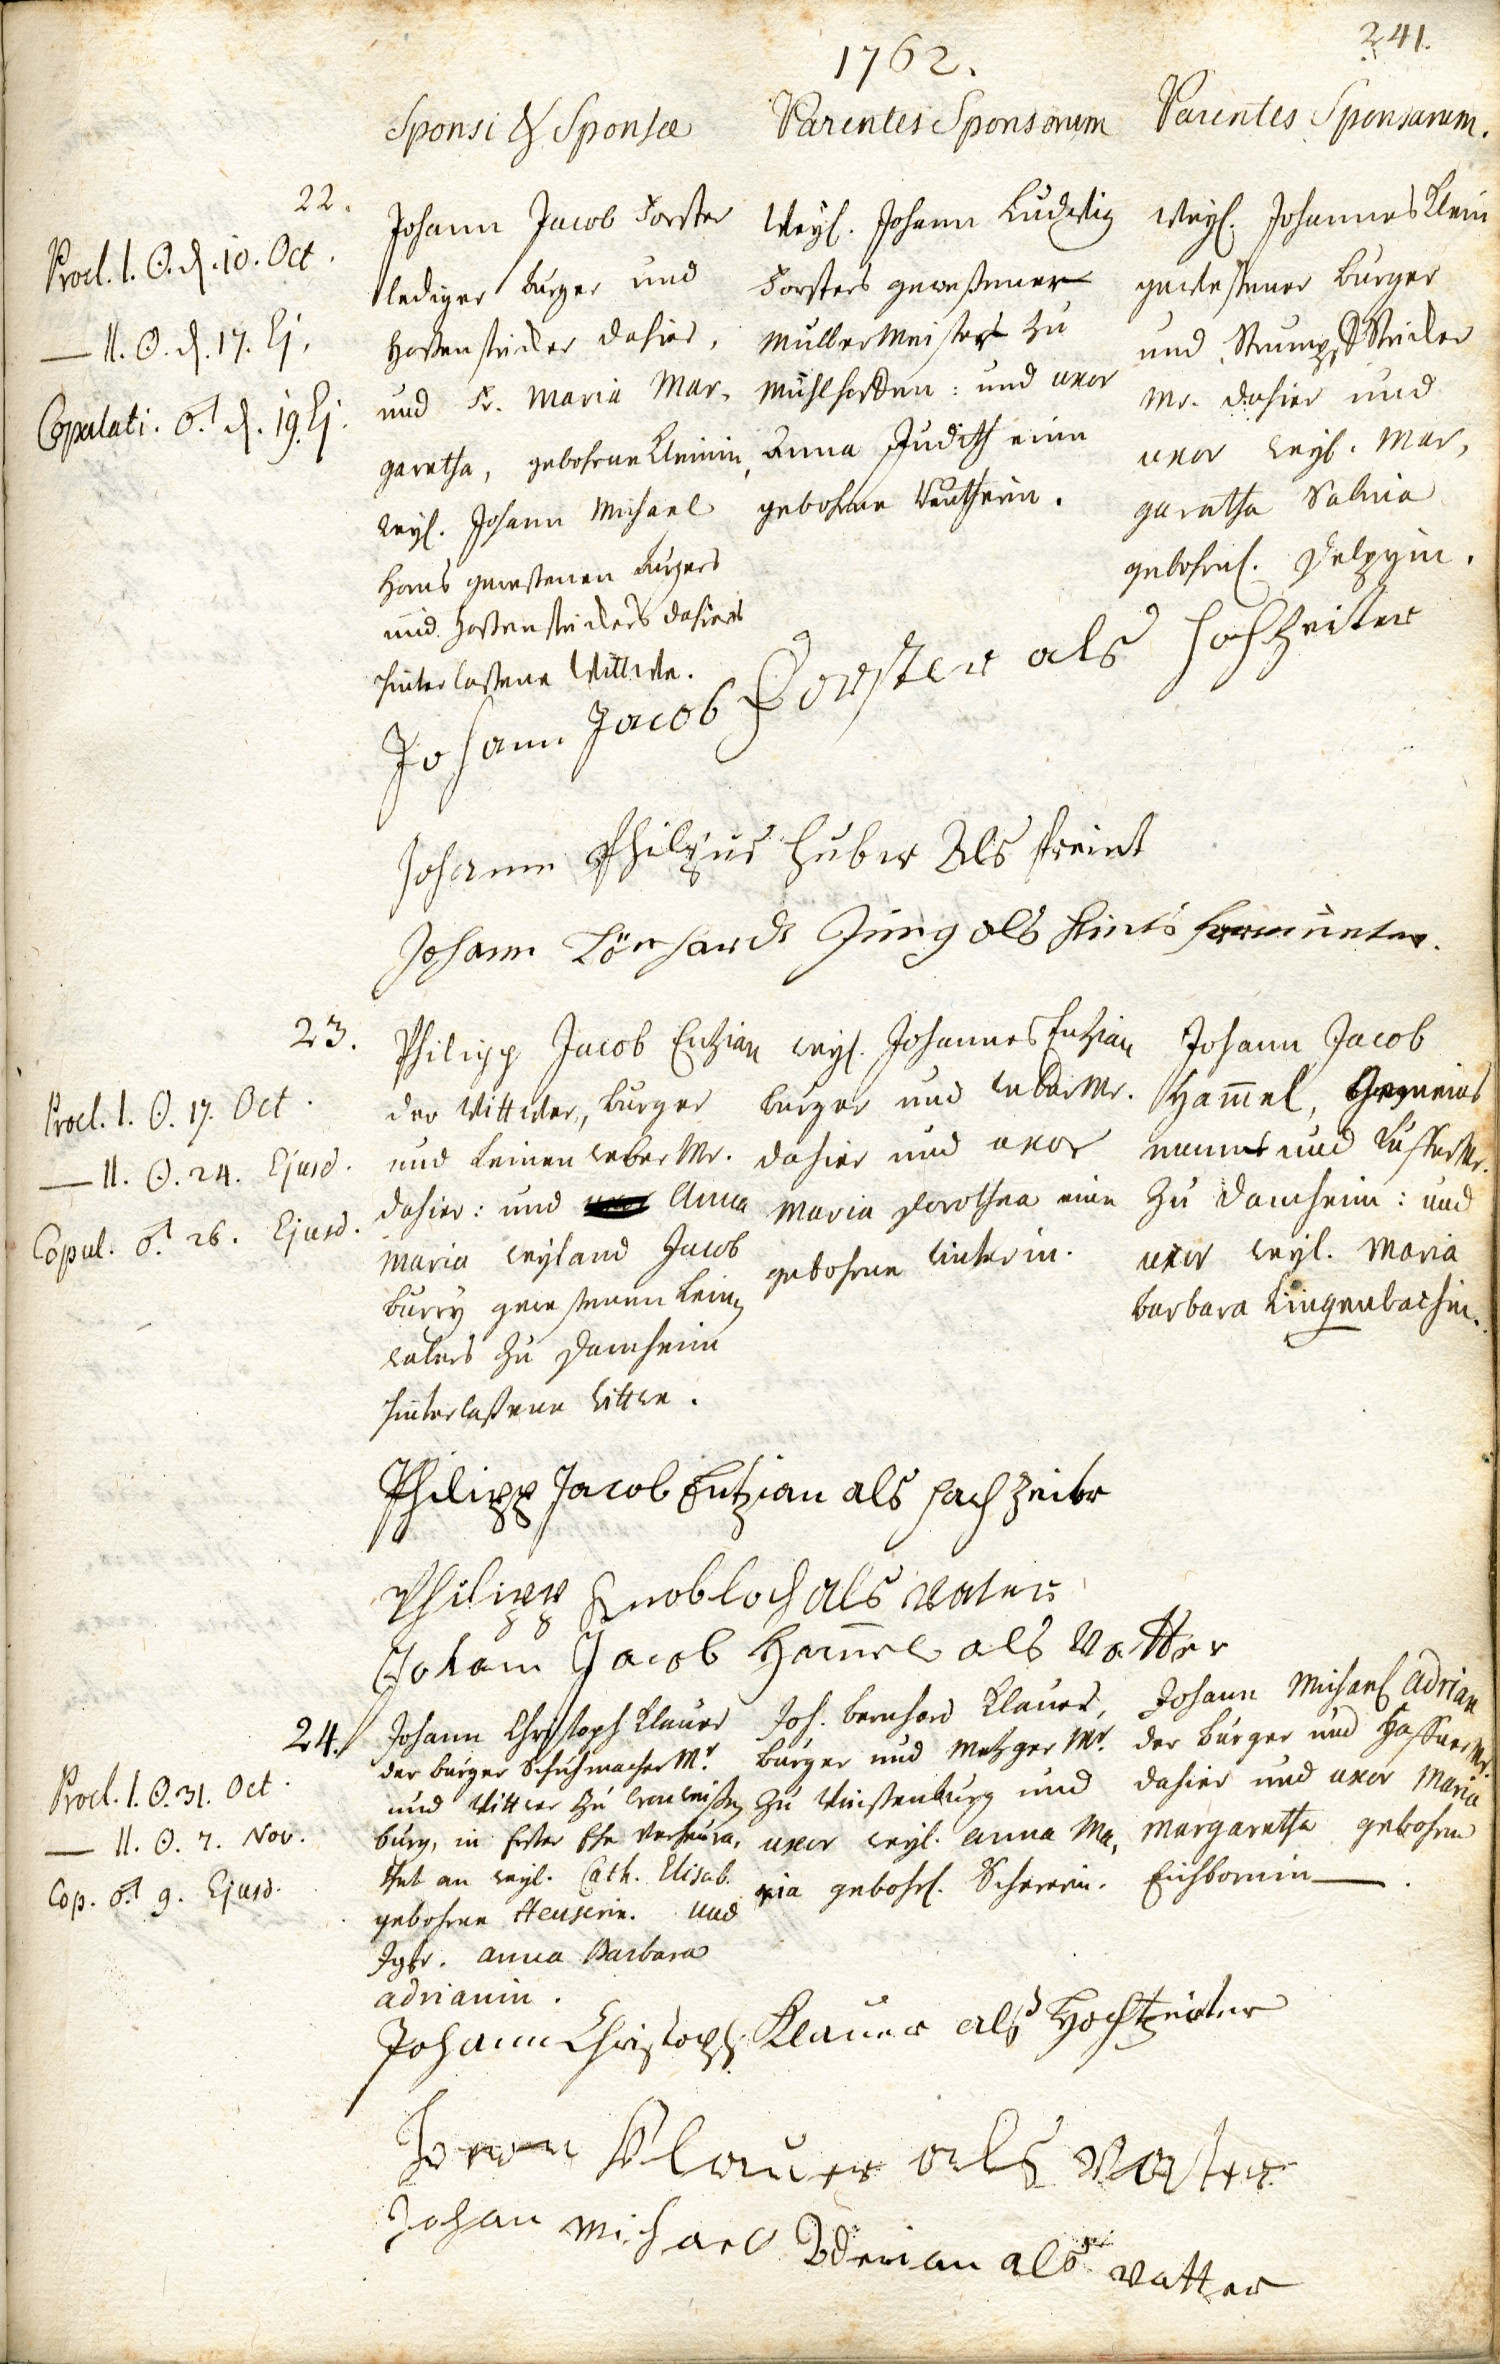 241.
1762.
Sponsi & Sponsæ
Parentes Sponsorum
Parentes Sponsarum.
22.
Procl. I. ☉. d. 10. Oct.
— II. ☉. d. 17. Ej.
Copulati. ♂. d. 19. Ej.
Johann Jacob Forster
lediger burger und
Hoßenstricker dahier,
und Fr. Maria Mar-
garetha, gebohrne Kleinin,
weyl. Johann Michael
gewesenen burgers
und Hoßenstrickers dahier
hinterlaßene Wittwe.
Weyl. Johann Ludwig
Forsters gewesener
Müller Meisters zu
Mühlhofen: und uxor
Anna Judith eine
gebohrne
weyl. Johannes Klein
gewesener burger
und Strumpf Stricker
Mr. dahier und
uxor weyl. Mar-
garetha Salmia
gebohrn.
Johann Jacob Forster als Hochzeiter
Johann Philipus Huber Als freint
Johann Lönhardt Jung als
23.
Procl. I. ☉. 17. Oct.
— II. ☉. 24. Ejusd.
Copul. ♂. 26. Ejusd.
Philipp Jacob Entzian
der Wittwer, burger
und Leinenweber Mr.
dahier: und Anna
Maria weyland Jacob
Burry gewesenen Lein-
webers zu Damheim
hinterlaßene Wittwe.
weyl. Johannes Entzian
burger und weber Mr.
dahier und uxor
Maria Dorothea eine
gebohrne
Johann Jacob
Hammel, Gemeins
mann und Küffer Mr.
zu Damheim: und
uxor weyl. Maria
Barbara Lingenbachin.
Philipp Jacob Entzian als hochzeiter
Philipp Knobloch als Vater
Johann Jacob Hammel als Vatter
24.
Procl. I. ☉. 31. Oct.
— II. ☉. 7. Nov.
Cop. ♂. 9. Ejusd.
Johann Christoph Klauer
der burger Schuhmacher Mr.
und Wittwer zu Cronweißen-
burg, in erster Ehe verheura-
thet an weyl. Cath. Elisab.
gebohrne Heuserin. und
Jgfr. Anna Barbara
Adrianin.
Joh. Bernhard Klauer,
burger und Metzger Mr.
zu Weißenburg und
uxor weyl. Anna Ma-
ria gebohrn. Schererin.
Johann Michael Adrian
der burger und Haffner Mr.
dahier und uxor Maria
Margaretha gebohrne
Eichbornin —.
Johann Christoph Klauer als Hochzeiter
Klauer als Vater
Johan Michael Aderian als Vatter